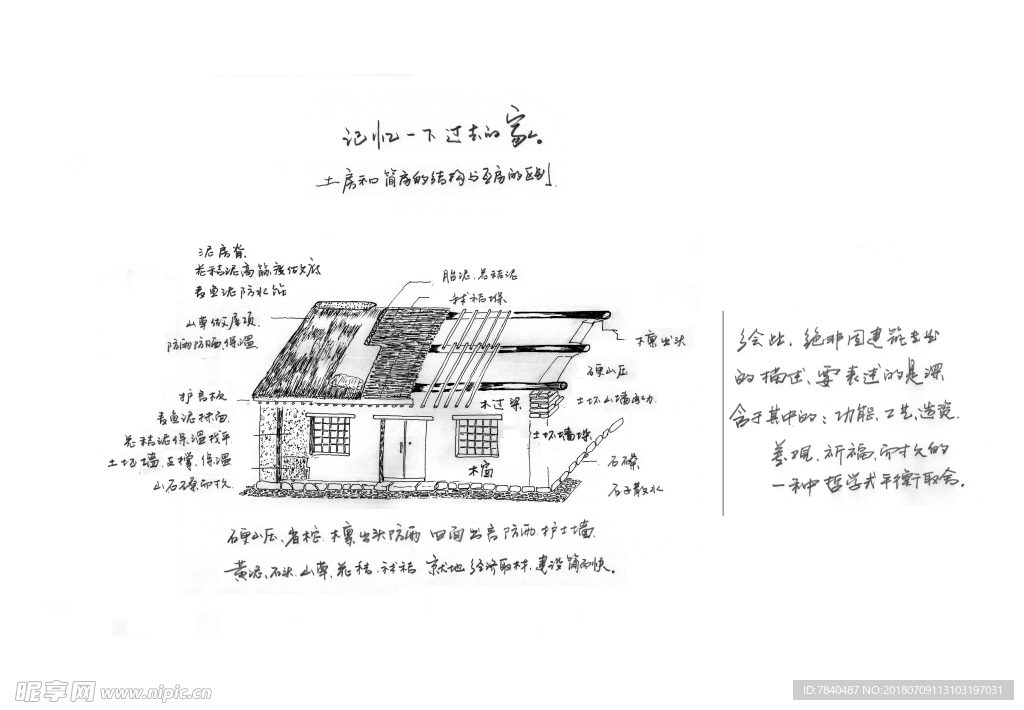 记忆一下过去的家。
土房和简房的结构与瓦房的区别
泥房脊
花秸泥高筋度做支底
麦鱼泥防水饰
山草做屋顶
防雨防晒保温
护房板
麦鱼泥抹面
花秸泥保温找平
土坯墙、支撑、保温
山石礤耐久
胎泥、花秸泥
秫秸垛
檩出头
硬山压
木过梁
土坯山墙
土坯墙垛
石礤
木窗
石子散水
绘此,绝非因建筑专业
的描述,要表达的是深
含于其中的:功能、工艺、造瓷
美观、祈福、耐久的
一种哲学式平衡取舍。
硬山压、省椽 木檩出头防雨 四面出房防雨护土墙
黄泥、石头、山草、花秸、秫秸 就地经济取材,建设简而快。
昵享网 www.nipic.cn
ID:7840487 NO:20180709113103197031